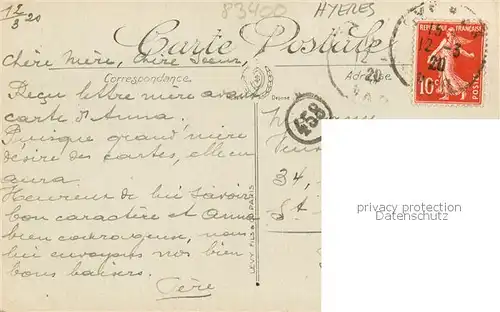 12/3 20
83400
HYERES
Carte Postale
Chère Mère, Chère Soeur,
Correspondance
Adresse
Reçu lettre mère avant
carte d'Anna.
Puisque grand'mère
désire des cartes, elle en
aura
Heureux de lui savoir
bon caractère et Anna
bien courageuse, nous
lui envoyons nos bien
bons baisers.
Père
LEVY FILS & Cie PARIS
458
34,
St
12 -3
20
REPUBLIQUE FRANCAISE
10c
POSTES
privacy protection
Datenschutz